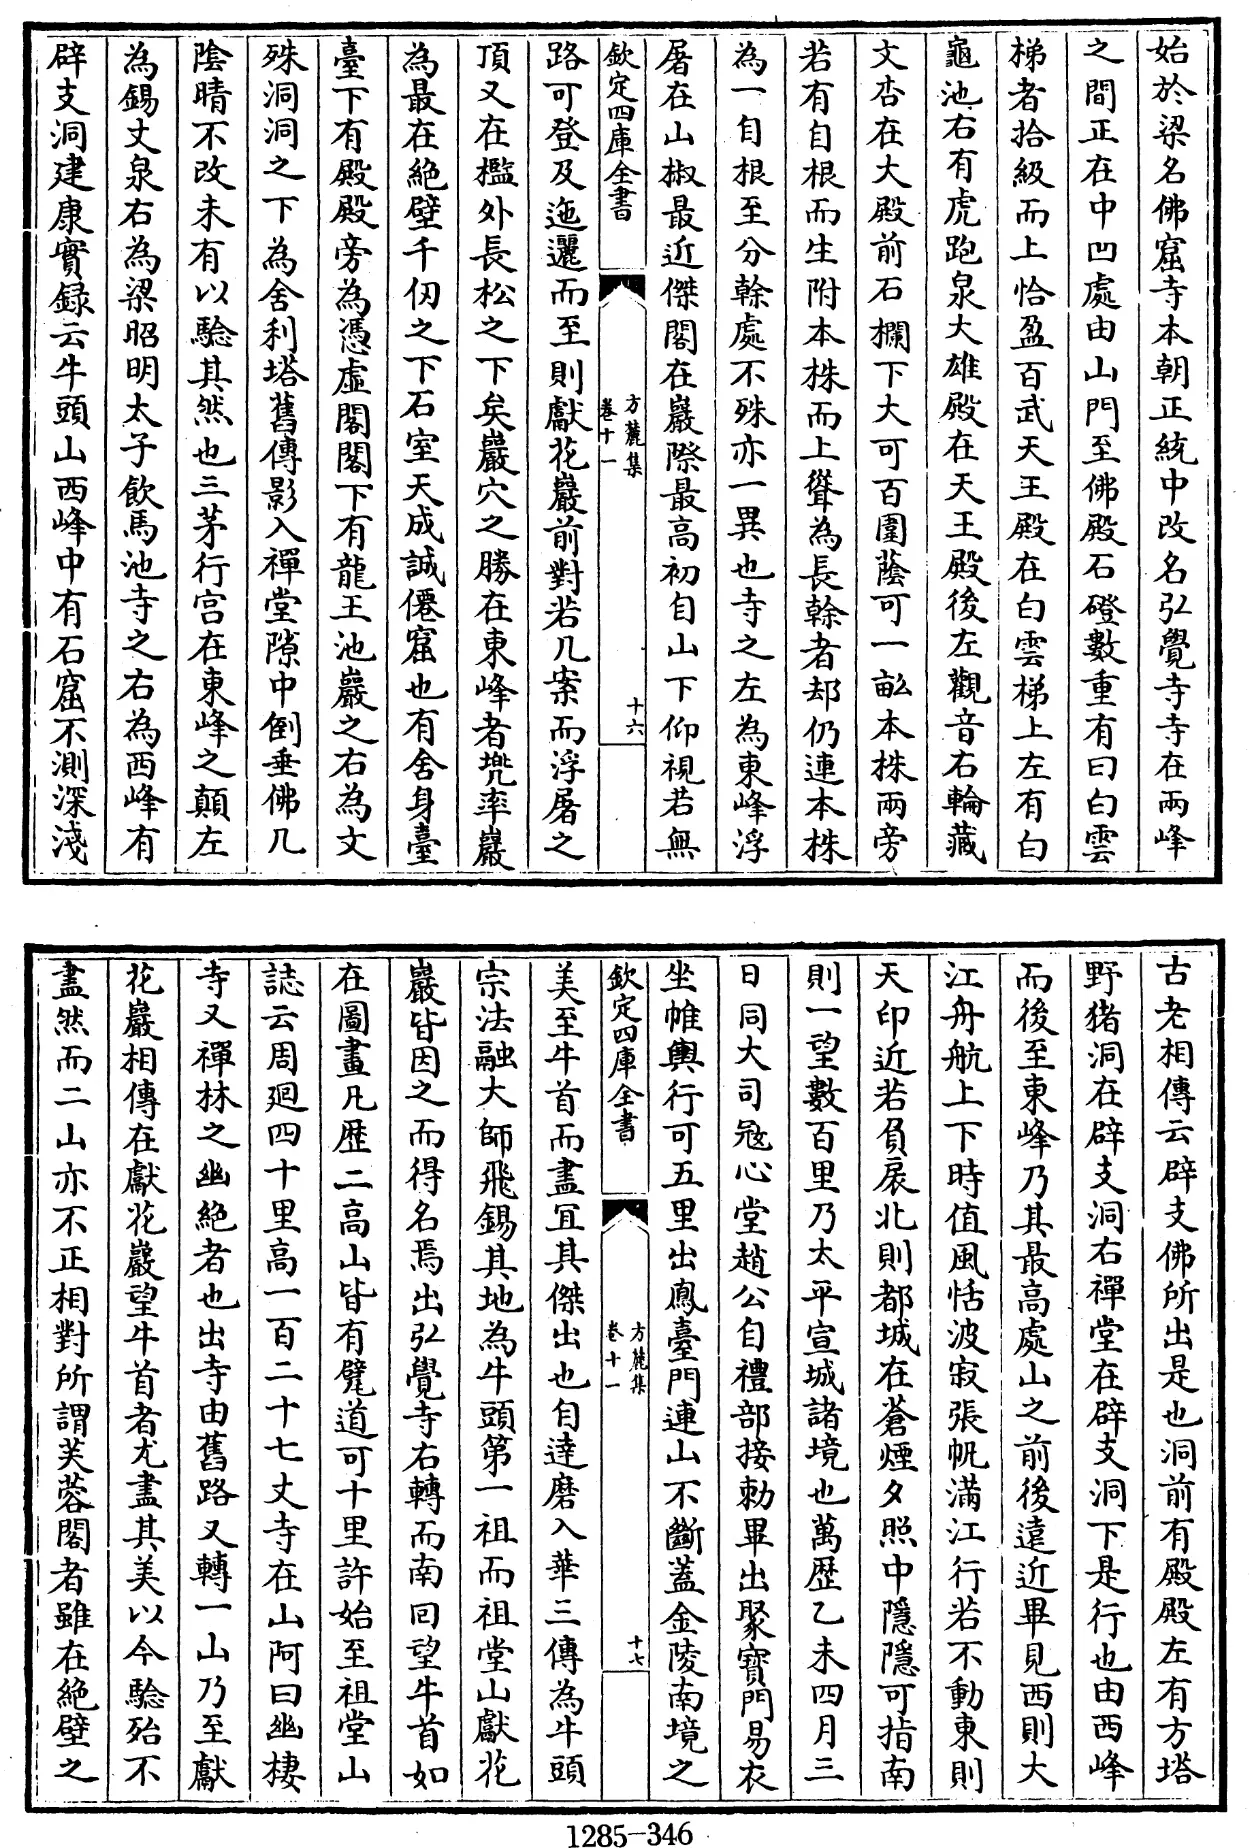 始於梁名佛窟寺本朝正統中改名弘覺寺寺在兩峰
之間正在中凹處由山門至佛殿石磴數重有曰白雲
梯者拾級而上恰盈百武天王殿在白雲梯上左有白
龜池右有虎跑泉大雄殿在天王殿後左觀音右輪藏
文杏在大殿前石欄下大可百圍蔭可一畝本株兩旁
若有自根而生附本株而上聳為長榦者却仍連本株
為一自根至分榦處不殊亦一異也寺之左為東峰浮
屠在山椒最近傑閣在巖際最高初自山下仰視若無
欽定四庫全書
方麓集
卷十一
十六
路可登及迤邐而至則獻花巖前對若几案而浮屠之
頂又在檻外長松之下矣巖穴之勝在東峰者兠率巖
為最在絶壁千仭之下石室天成誠僊窟也有舍身臺
臺下有殿殿旁為憑虛閣閣下有龍王池巖之右為文
殊洞洞之下為舍利塔舊傳影入禪堂隙中倒垂佛几
陰晴不改未有以驗其然也三茅行宫在東峰之顛左
為錫丈泉右為梁昭明太子飲馬池寺之右為西峰有
辟支洞建康實録云牛頭山西峰中有石窟不測深淺
古老相傳云辟支佛所出是也洞前有殿殿左有方塔
野猪洞在辟支洞右禪堂在辟支洞下是行也由西峰
而後至東峰乃其最高處山之前後遠近畢見西則大
江舟航上下時值風恬波寂張帆滿江行若不動東則
天印近若負扆北則都城在蒼煙夕照中隱隱可指南
則一望數百里乃太平宣城諸境也萬歴乙未四月三
日同大司冦心堂趙公自禮部接勅畢出聚寶門易衣
坐帷輿行可五里出鳳臺門連山不斷蓋金陵南境之
欽定四庫全書
方麓集
卷十一
十七
美至牛首而盡冝其傑出也自達磨入華三傳為牛頭
宗法融大師飛錫其地為牛頭第一祖而祖堂山獻花
巖皆因之而得名焉出弘覺寺右轉而南回望牛首如
在圖畫凡歴二高山皆有躄道可十里許始至祖堂山
誌云周廻四十里高一百二十七丈寺在山阿曰幽棲
寺又禪林之幽絶者也出寺由舊路又轉一山乃至獻
花巖相傳在獻花巖望牛首者尤盡其美以今驗殆不
盡然而二山亦不正相對所謂芙蓉閣者雖在絶壁之
1285-346